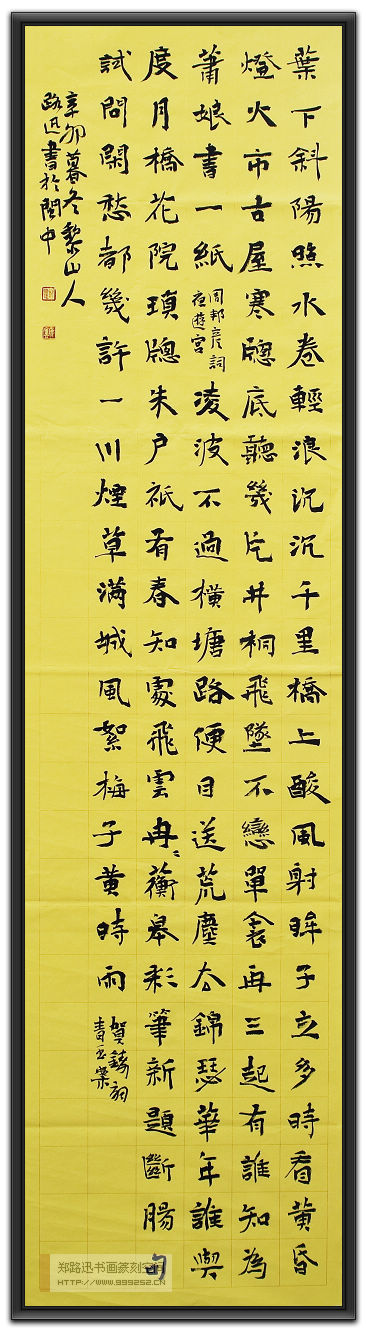 葉下斜陽照水卷輕浪沉沉千里橋上酸風射眸子立多時看黃昏
燈火市古屋寒牕底聽幾片井桐飛墜不戀單衾再三起有誰知為
蕭娘書一紙
周邦彥詞
夜遊宮
凌波不過橫塘路便目送荒塵去錦瑟華年誰與
度月橋花院瑣牕朱戶祇有春知處飛雲冉々蘅皋彩筆新題斷腸句
試問閑愁都幾許一川煙草滿城風絮梅子黃時雨
賀鑄詞
青玉案
辛卯暮冬黎山人
路迅書於閩中
郑路迅书画篆刻空间
HTTP://WWW.999252.CN